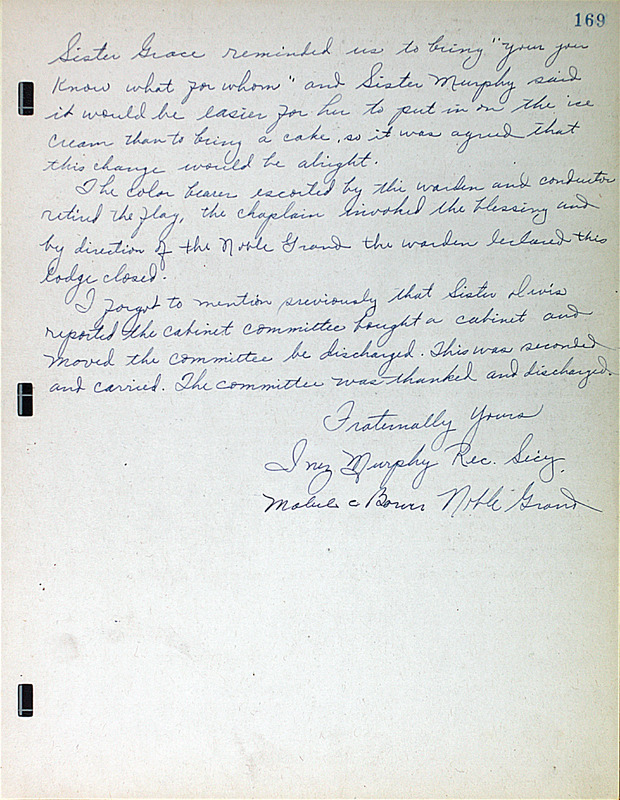 169
Sister Grace reminded us to bring "your you
know what for whom" and Sister Murphy said
it would be easier for her to put in on the ice
cream than to bring a cake, so it was agreed that
this change would be alright.
The color bearer escorted by the warden and conductor
retired the flag, the chaplain invoked the blessing and
by direction of the Noble Grand the warden declared this
lodge closed.
I forgot to mention previously that Sister Davis
reported the cabinet committee bought a cabinet and
moved the committee be discharged. This was seconded
and carried. The committee was thanked and discharged.
Fraternally Yours
Inez Murphy Rec. Secy.
Mabel C Bower Noble Grand